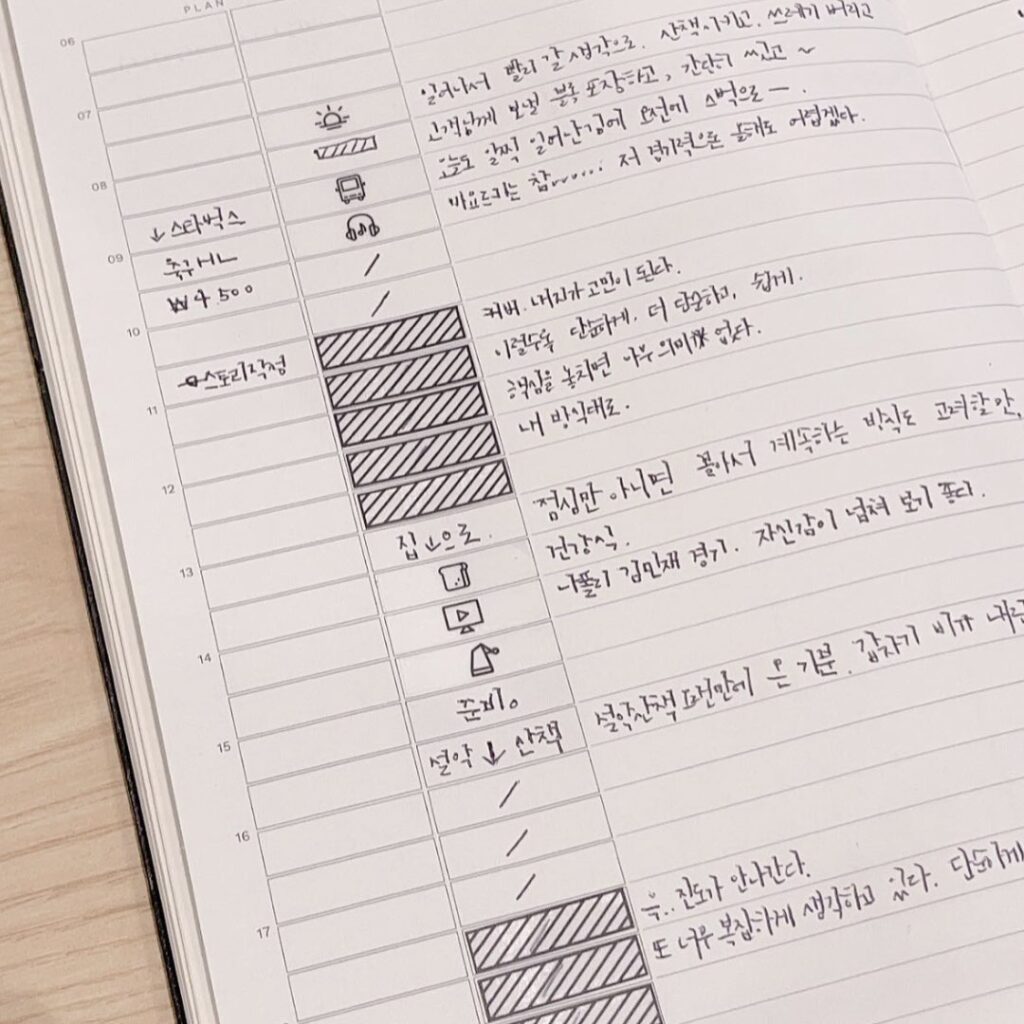 PLAN
06
일어나서 빨리 갈 생각으로. 산책시키고. 쓰레기 버리고
07
고객님께 보낼 블록 포장하고, 간단히 씻고 ~
오늘도 일찍 일어난김에 오전에 스벅으로 一.
08
마요르카는 참...... 저 경기력으론 올해도 어렵겠다.
↓ 스타벅스
09
축구 HL
₩4.500
커버. 내지가 고민이 된다.
10
이럴수록 단순하게. 더 단순하고, 쉽게.
스토리작성
핵심을 놓치면 아무 의미 없다.
11
내 방식대로.
점심만 아니면 몰아서 계속하는 방식도 고려할만,
12
집↓으로.
건강식.
13
나폴리 김민재 경기. 자신감이 넘쳐 보기 좋다.
14
준비。
설악산책 오랜만에 온 기분. 갑자기 비가
15
설악 ↓ 산책
16
윽.. 진도가 안나간다.
17
또 너무 복잡하게 생각하고 있다. 단순하게